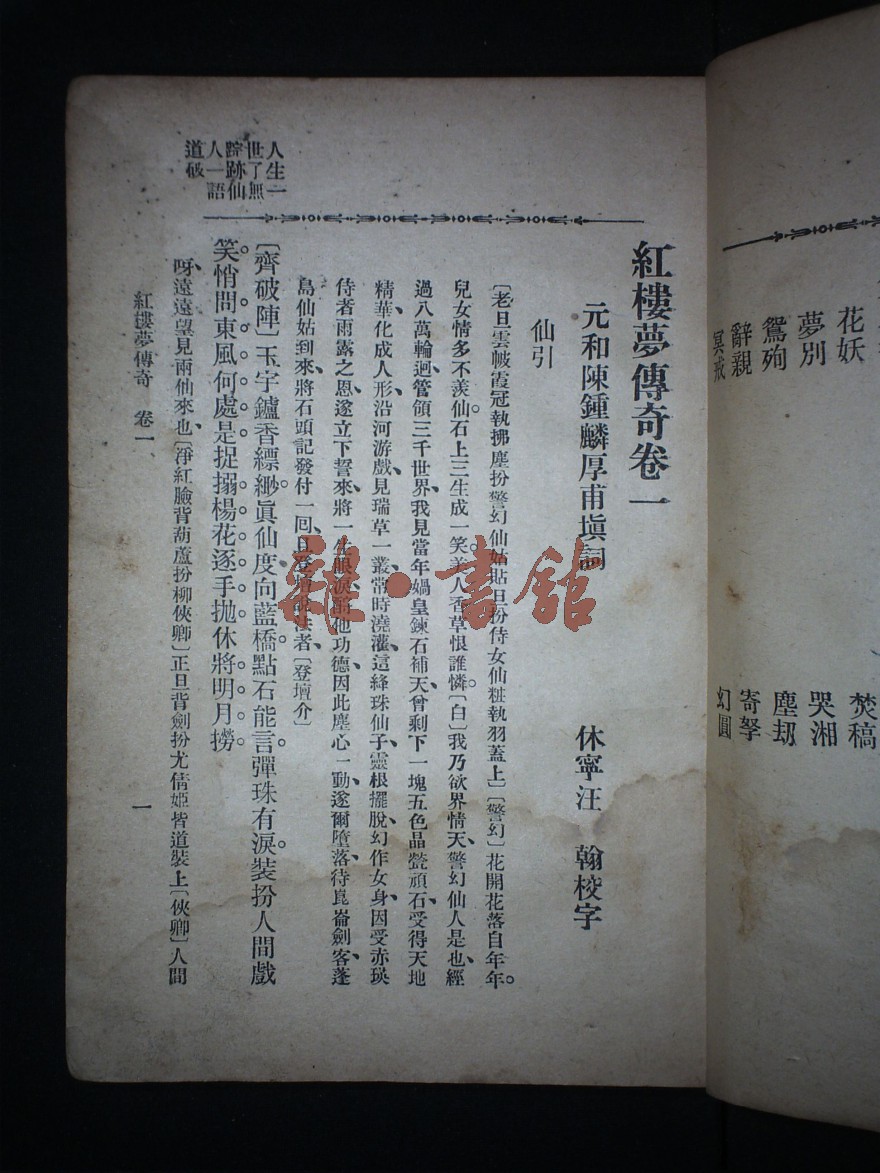 花妖 焚稿
夢別 哭湘
鴛殉 塵刼
辭親 寄孥
冥戒 幻圓
人生一
世了無
踪跡仙
人一語
道破
紅樓夢傳奇卷一
元和陳鍾麟厚甫塡詞 休寧汪 翰校字
仙引
〔老旦雲帔霞冠執拂塵扮警幻仙姑貼旦扮侍女仙粧執羽蓋上〕〔警幻〕花開花落自年年。
兒女情多不羨仙。石上三生成一笑。美人香草恨誰憐。〔白〕我乃欲界情天、警幻仙人是也、經
過八萬輪迴、管領三千世界、我見當年媧皇鍊石補天、曾剩下一塊五色晶瑩頑石、受得天地
精華、化成人形、沿河游戲、見瑞草一叢、常時澆灌、這絳珠仙子、靈根擺脫、幻作女身、因受赤瑛
侍者雨露之恩、遂立下誓來、將一生眼淚、酬他功德、因此塵心一動、遂爾墮落、待崑崙劍客、蓬
島仙姑到來、將石頭記發付一囘、且登壇說法者、〔登壇介〕
〔齊破陣〕玉宇鑪香縹緲。眞仙度向藍橋。點石能言。彈珠有淚。裝扮人間戲
笑。悄問東風何處是。捉搦楊花逐手拋。休將明月撈。
呀、遠遠望見兩仙來也、〔淨紅臉背葫蘆扮柳俠卿〕正旦背劍扮尤倩姬皆道裝上〔俠卿〕人間
紅樓夢傳奇 卷一 一
雜·書館